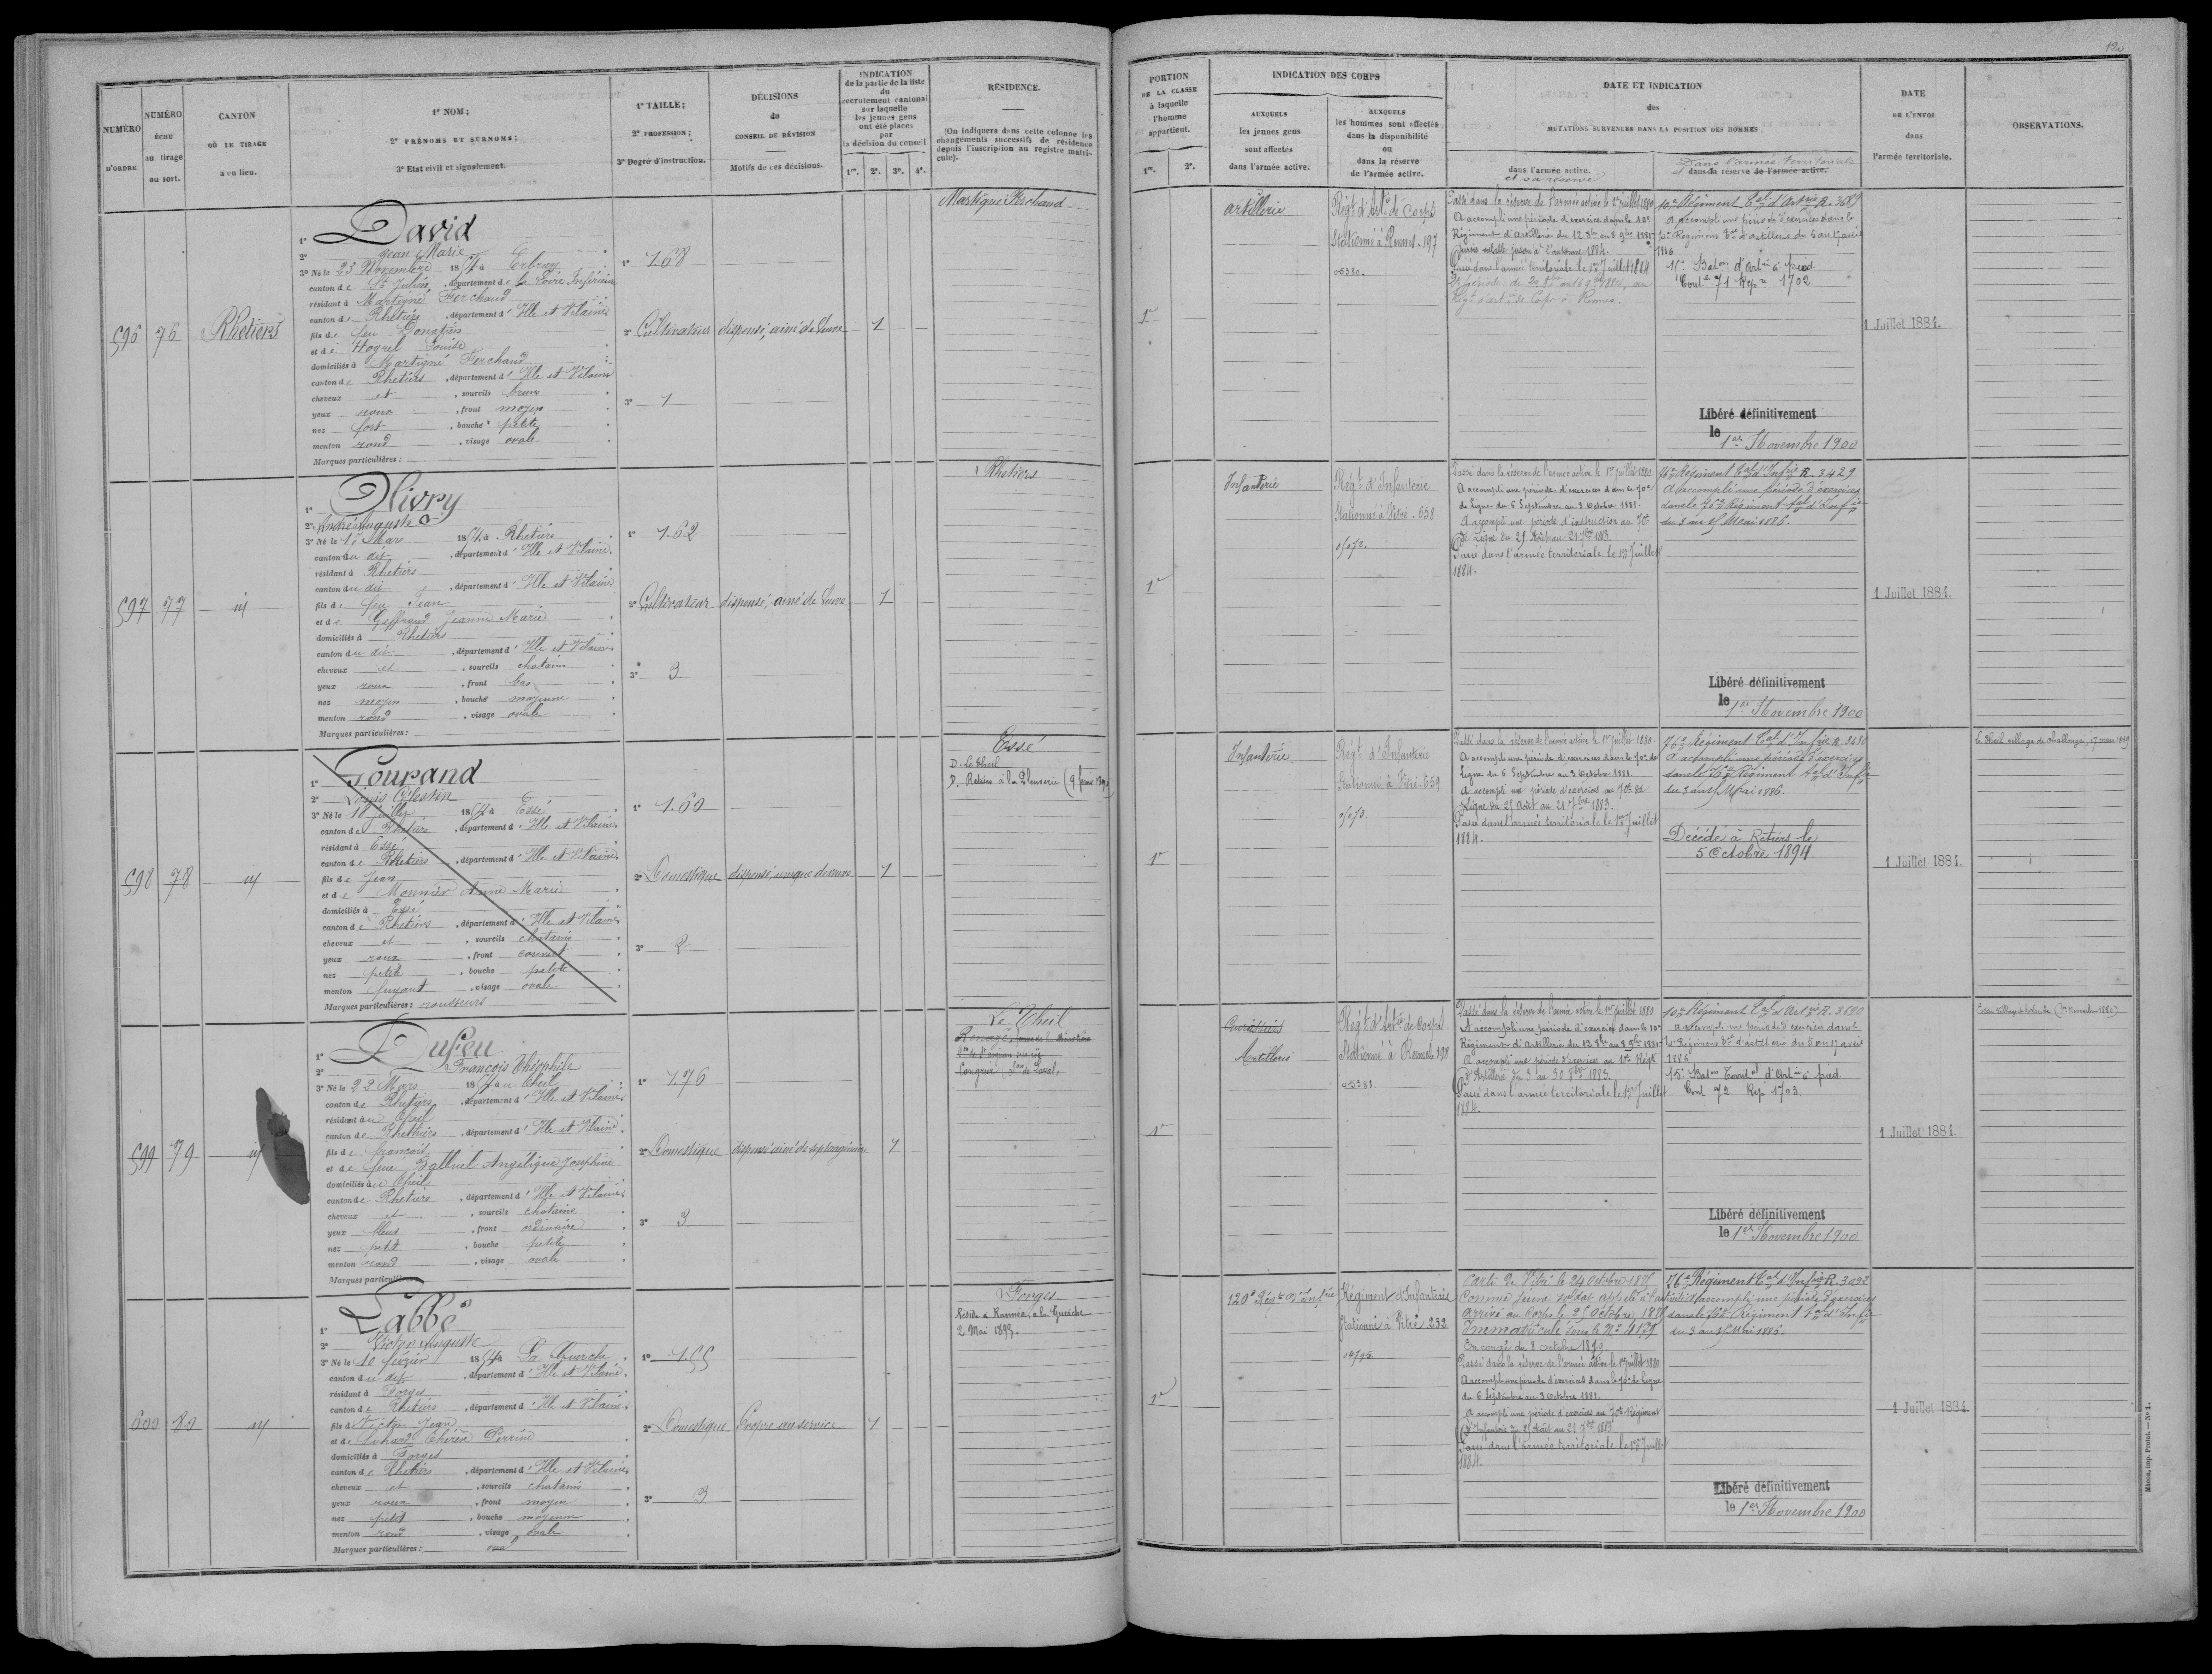 120
NUMÉRO D'ORDRE
NUMÉRO échu au tirage au sort.
CANTON OÙ LE TIRAGE a eu lieu.
1° NOM;
2° PRÉNOMS ET SURNOMS;
3° Etat civil et signalement.
1° TAILLE;
2° PROFESSION;
3° Degré d'instruction.
DÉCISIONS
du
CONSEIL DE RÉVISION
Motifs de ces décisions.
INDICATION
de la partie de la liste
du
recrutement cantonal
sur laquelle
les jeunes gens
ont été placés
par
la décision du conseil
1re. 2e. 3e. 4e.
RÉSIDENCE.
(On indiquera dans cette colonne les
changements successifs de résidence
depuis l'inscription au registre matri-
cule).
PORTION
DE LA CLASSE
à laquelle
l'homme
appartient.
1re. 2e.
INDICATION DES CORPS
AUXQUELS
les jeunes gens
sont affectés
dans l'armée active.
AUXQUELS
les hommes sont affectés
dans la disponibilité
ou
dans la réserve
de l'armée active.
DATE ET INDICATION
des
MUTATIONS SURVENUES DANS LA POSITION DES HOMMES
dans l'armée active.
et sa réserve
Dans l'armée territoriale
et dans sa réserve de l'armée active.
DATE
DE L'ENVOI
dans
l'armée territoriale.
OBSERVATIONS.
596
76
Rhetiers
1° David
2° Jean Marie
3° Né le 23 Novembre 1854 à Erbray
canton de St Julien, département de la Loire Inférieure
résidant à Martigné Ferchaud
canton de Rhetiers, département d'Ille et Vilaine
fils de feu Donatien
et de Hogrel Louise
domiciliés à Martigné Ferchaud
canton de Rhetiers, département d'Ille et Vilaine
cheveux et, sourcils bruns
yeux roux, front moyen
nez fort, bouche petite
menton rond, visage ovale
Marques particulières:
1° 1.68
2° Cultivateur
3° 1
dispensé, ainé de Veuve
1
Martigné Ferchaud
1re
Artillerie
Régt d'Artie de Corps
Stationné à Rennes. 197
05380.
Passé dans la réserve de l'armée active le 1er juillet 1880
A accompli une période d'exercice dans le 10e
Régiment d'Artillerie du 12 8bre au 8 9bre 1881
Passé dans l'armée territoriale le 1er Juillet 1884
10e Régiment Tal d'Artrie R. 3689
A accompli une période d'exercices dans le
10e Régiment Tal d'artillerie du 5 au 17 avril
1886
11e Batон d'Artie à pied
Cont le 71 Rep re 1702
Libéré définitivement
le 1er Novembre 1900
1 Juillet 1884.
597
77
id
1° Olivry
2° André Auguste
3° Né le 10 Mars 1854 à Rhetiers
canton du dit, département d'Ille et Vilaine
résidant à Rhetiers
canton du dit, département d'Ille et Vilaine
fils de feu Jean
et de Geffrand Jeanne Marie
domiciliés à Rhetiers
canton du dit, département d'Ille et Vilaine
cheveux et, sourcils chatains
yeux roux, front bas
nez moyen, bouche moyenne
menton rond, visage ovale
Marques particulières:
1° 1.62
2° Cultivateur
3° 3
dispensé, ainé de Veuve
1
Rhetiers
1re
Infanterie
Régt d'Infanterie
Stationné à Vitré. 658
Passé dans la réserve de l'armée active le 1er Juillet 1880.
A accompli une période d'exercices dans le 70e
de Ligne du 6 Septembre au 3 Octobre 1881.
A accompli une période d'instruction au 70e
de Ligne du 25 Août au 21 7bre 1883.
Passé dans l'armée territoriale le 1er Juillet
1884.
76e Régiment Tal d'Infrie R. 3429
A accompli une période d'exercices
dans le 76e Régiment Tal d'Infie
du 3 au 15 Mai 1886.
Libéré définitivement
le 1er Novembre 1900
1 Juillet 1884.
598
78
id
1° Gourand
2° Louis Célestin
3° Né le 18 Juillet 1854 à Essé
canton de Rhetiers, département d'Ille et Vilaine
résidant à Essé
canton de Rhetiers, département d'Ille et Vilaine
fils de Jean
et de Monnier Anne Marie
domiciliés à Essé
canton de Rhetiers, département d'Ille et Vilaine
cheveux et, sourcils chatains
yeux roux, front couvert
nez petit, bouche petite
menton fuyant, visage ovale
Marques particulières: rousseurs
1° 1.60
2° Domestique
3° 2
dispensé, unique de veuve
1
Essé
D. Le Theil
1re
Infanterie
Régt d'Infanterie
Stationné à Vitré. 659
Passé dans la réserve de l'armée active le 1er Juillet 1880.
A accompli une période d'exercices dans le 70e de
Ligne du 6 Septembre au 3 Octobre 1881.
A accompli une période d'exercices au 70e de
Ligne du 25 Août au 21 7bre 1883.
Passé dans l'armée territoriale le 1er Juillet
1884.
76e Régiment Tal d'Infrie R. 3430
A accompli une période d'exercices
dans le 76e Régiment Tal d'Infie
du 3 au 15 Mai 1886.
Décédé à Retiers le
5 Octobre 1894.
1 Juillet 1884.
599
79
id
1° Dufeu
2° François Théophile
3° Né le 22 Mars 1854 au Theil
canton de Rhetiers, département d'Ille et Vilaine
résidant au Theil
canton de Rhethiers, département d'Ille et Vilaine
fils de François
et de feue Balluel Angélique Joséphine
domiciliés au Theil
canton de Rhetiers, département d'Ille et Vilaine
cheveux et, sourcils chatains
yeux bleus, front ordinaire
nez petit, bouche petite
menton rond, visage ovale
Marques particulières
1° 1.76
2° Domestique
3° 3
dispensé ainé de septuagénaire
1
Le Theil
1re
Cuirassiers
Artillerie
Régt d'Artie de Corps
Stationné à Rennes 198
05381.
Passé dans la réserve de l'armée active le 1er juillet 1880
A accompli une période d'exercice dans le 10e
Régiment d'Artillerie du 12 8bre au 8 9bre 1881
A accompli une période d'exercices au 10e Régt
d'Artillerie du 3 au 30 8bre 1883.
Passé dans l'armée territoriale le 1er Juillet
1884.
10e Régiment Tal d'Artrie R. 3690
A accompli une période d'exercices dans le
10e Régiment Tal d'artillerie du 5 au 17 avril
1886
15e Baton Territal d'Artie à pied
Cont 72 Rep 1703.
Libéré définitivement
le 1er Novembre 1900
1 Juillet 1884.
600
80
id
1° Labbé
2° Victor Auguste
3° Né le 10 février 1854 à La Guerche
canton du dit, département d'Ille et Vilaine
résidant à Forges
canton de Rhetiers, département d'Ille et Vilaine
fils de Victor Jean
et de Luhard Thérèse Perrine
domiciliés à Forges
canton de Rhetiers, département d'Ille et Vilaine
cheveux et, sourcils chatains
yeux roux, front moyen
nez petit, bouche moyenne
menton rond, visage ovale
Marques particulières:
1° 1.55
2° Domestique
3° 3
Propre au service
1
Forges
2 Mai 1893.
1re
120e Régt d'Infrie
Régiment d'Infanterie
Stationné à Vitré 232
Parti de Vitré le 24 octobre 1875
Comme jeune soldat appelé
Arrivé au Corps le 25 Octobre
Immatriculé sous le No 4175
En congé du 8 octobre 1879.
Passé dans la réserve de l'armée active le 1er juillet 1880
A accompli une période d'exercices dans le 70e de Ligne
du 6 Septembre au 3 Octobre 1881.
A accompli une période d'exercices au 70e Régiment
d'Infanterie du 25 Août au 21 7bre 1883
Passé dans l'armée territoriale le 1er Juillet
1884.
76e Régiment Tal d'Infrie R. 3092
A accompli une période d'exercices
dans le 76e Régiment Tal d'Infie
du 3 au 15 Mai 1886.
Libéré définitivement
le 1er Novembre 1900
1 Juillet 1884.
Mâcon, imp. Protat. — No 1.